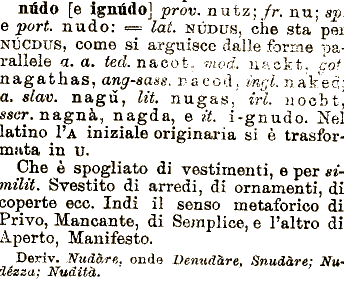 núdo [e ignúdo] prov. nutz; fr. nu; sp.
e port. nudo: = lat. NÚDUS, che sta per
NÚCDUS, come si arguisce dalle forme pa-
rallele a. a. ted. nacot. mod. nackt. got.
nagathas, ang-sass. nacod, ingl. naked;
a. slav. nagŭ, lit. nugas, irl. nocht,
sscr. nagnà, nagda, e it. i-gnudo. Nel
latino l'A iniziale originaria si è trasfor-
mata in U.
Che è spogliato di vestimenti, e per si-
milit. Svestito di arredi, di ornamenti, di
coperte ecc. Indi il senso metaforico di
Privo, Mancante, di Semplice, e l'altro di
Aperto, Manifesto.
Deriv. Nudàre, onde Denudàre, Snudàre; Nu-
dézza; Nudità.